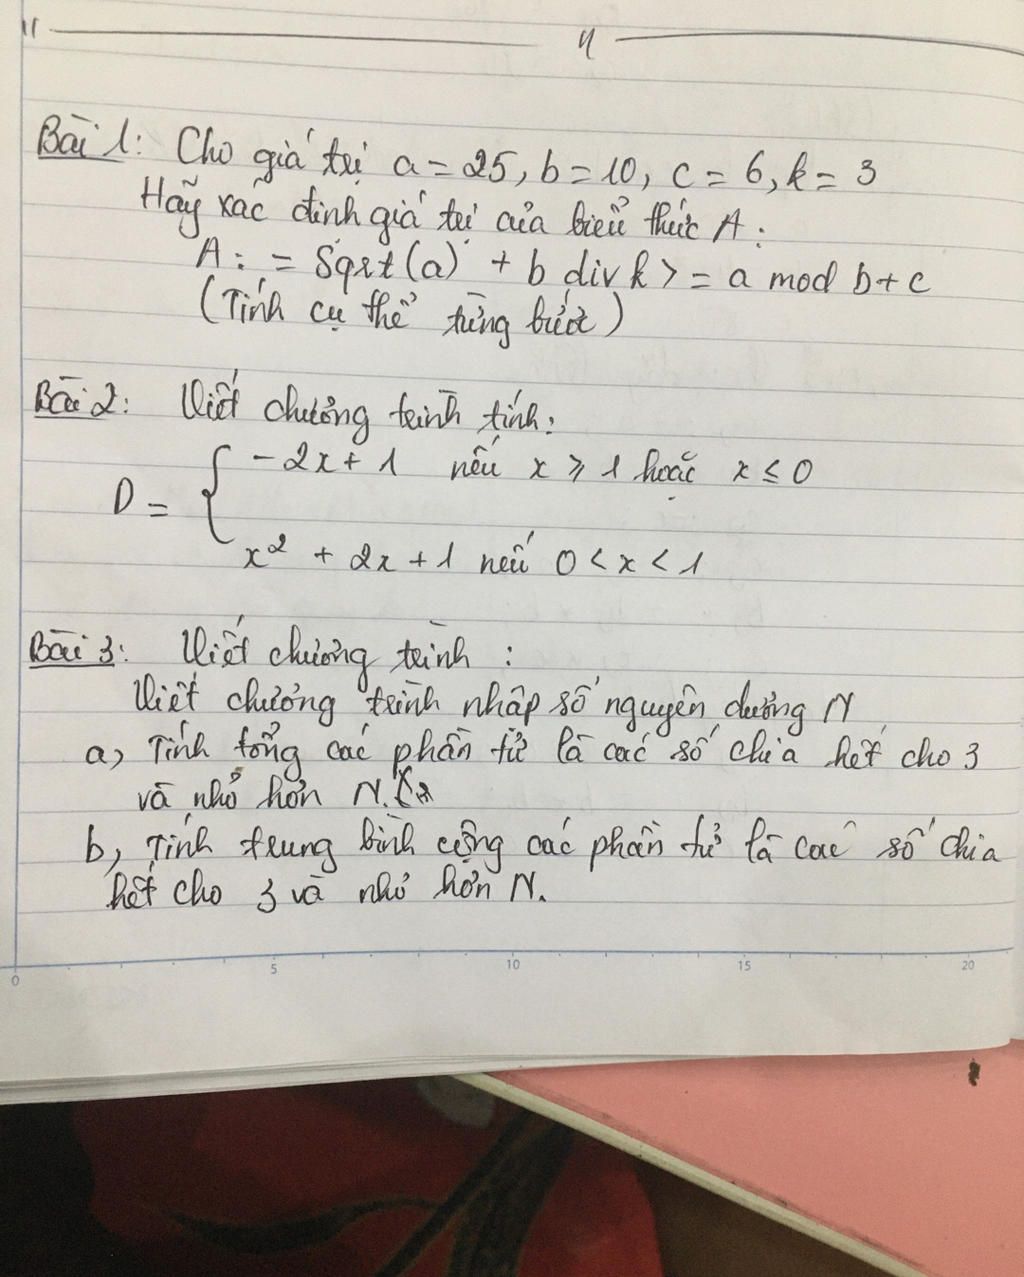 Bài 1: Cho giá trị a = 25, b = 10, c = 6, k = 3
Hãy xác định giá trị của biểu thức A:
A: = Sqrt(a) + b div k > = a mod b + c
(Tính cụ thể từng bước)
Bài 2: Viết chương trình tính:
D = { -2x + 1 nếu x ≥ 1 hoặc x ≤ 0
x² + 2x + 1 nếu 0 < x < 1
Bài 3: Viết chương trình:
Viết chương trình nhập số nguyên dương N
a, Tính tổng các phần tử là các số chia hết cho 3
và nhỏ hơn N.
b, Tính trung bình cộng các phần tử là các số chia
hết cho 3 và nhỏ hơn N.
0 5 10 15 20